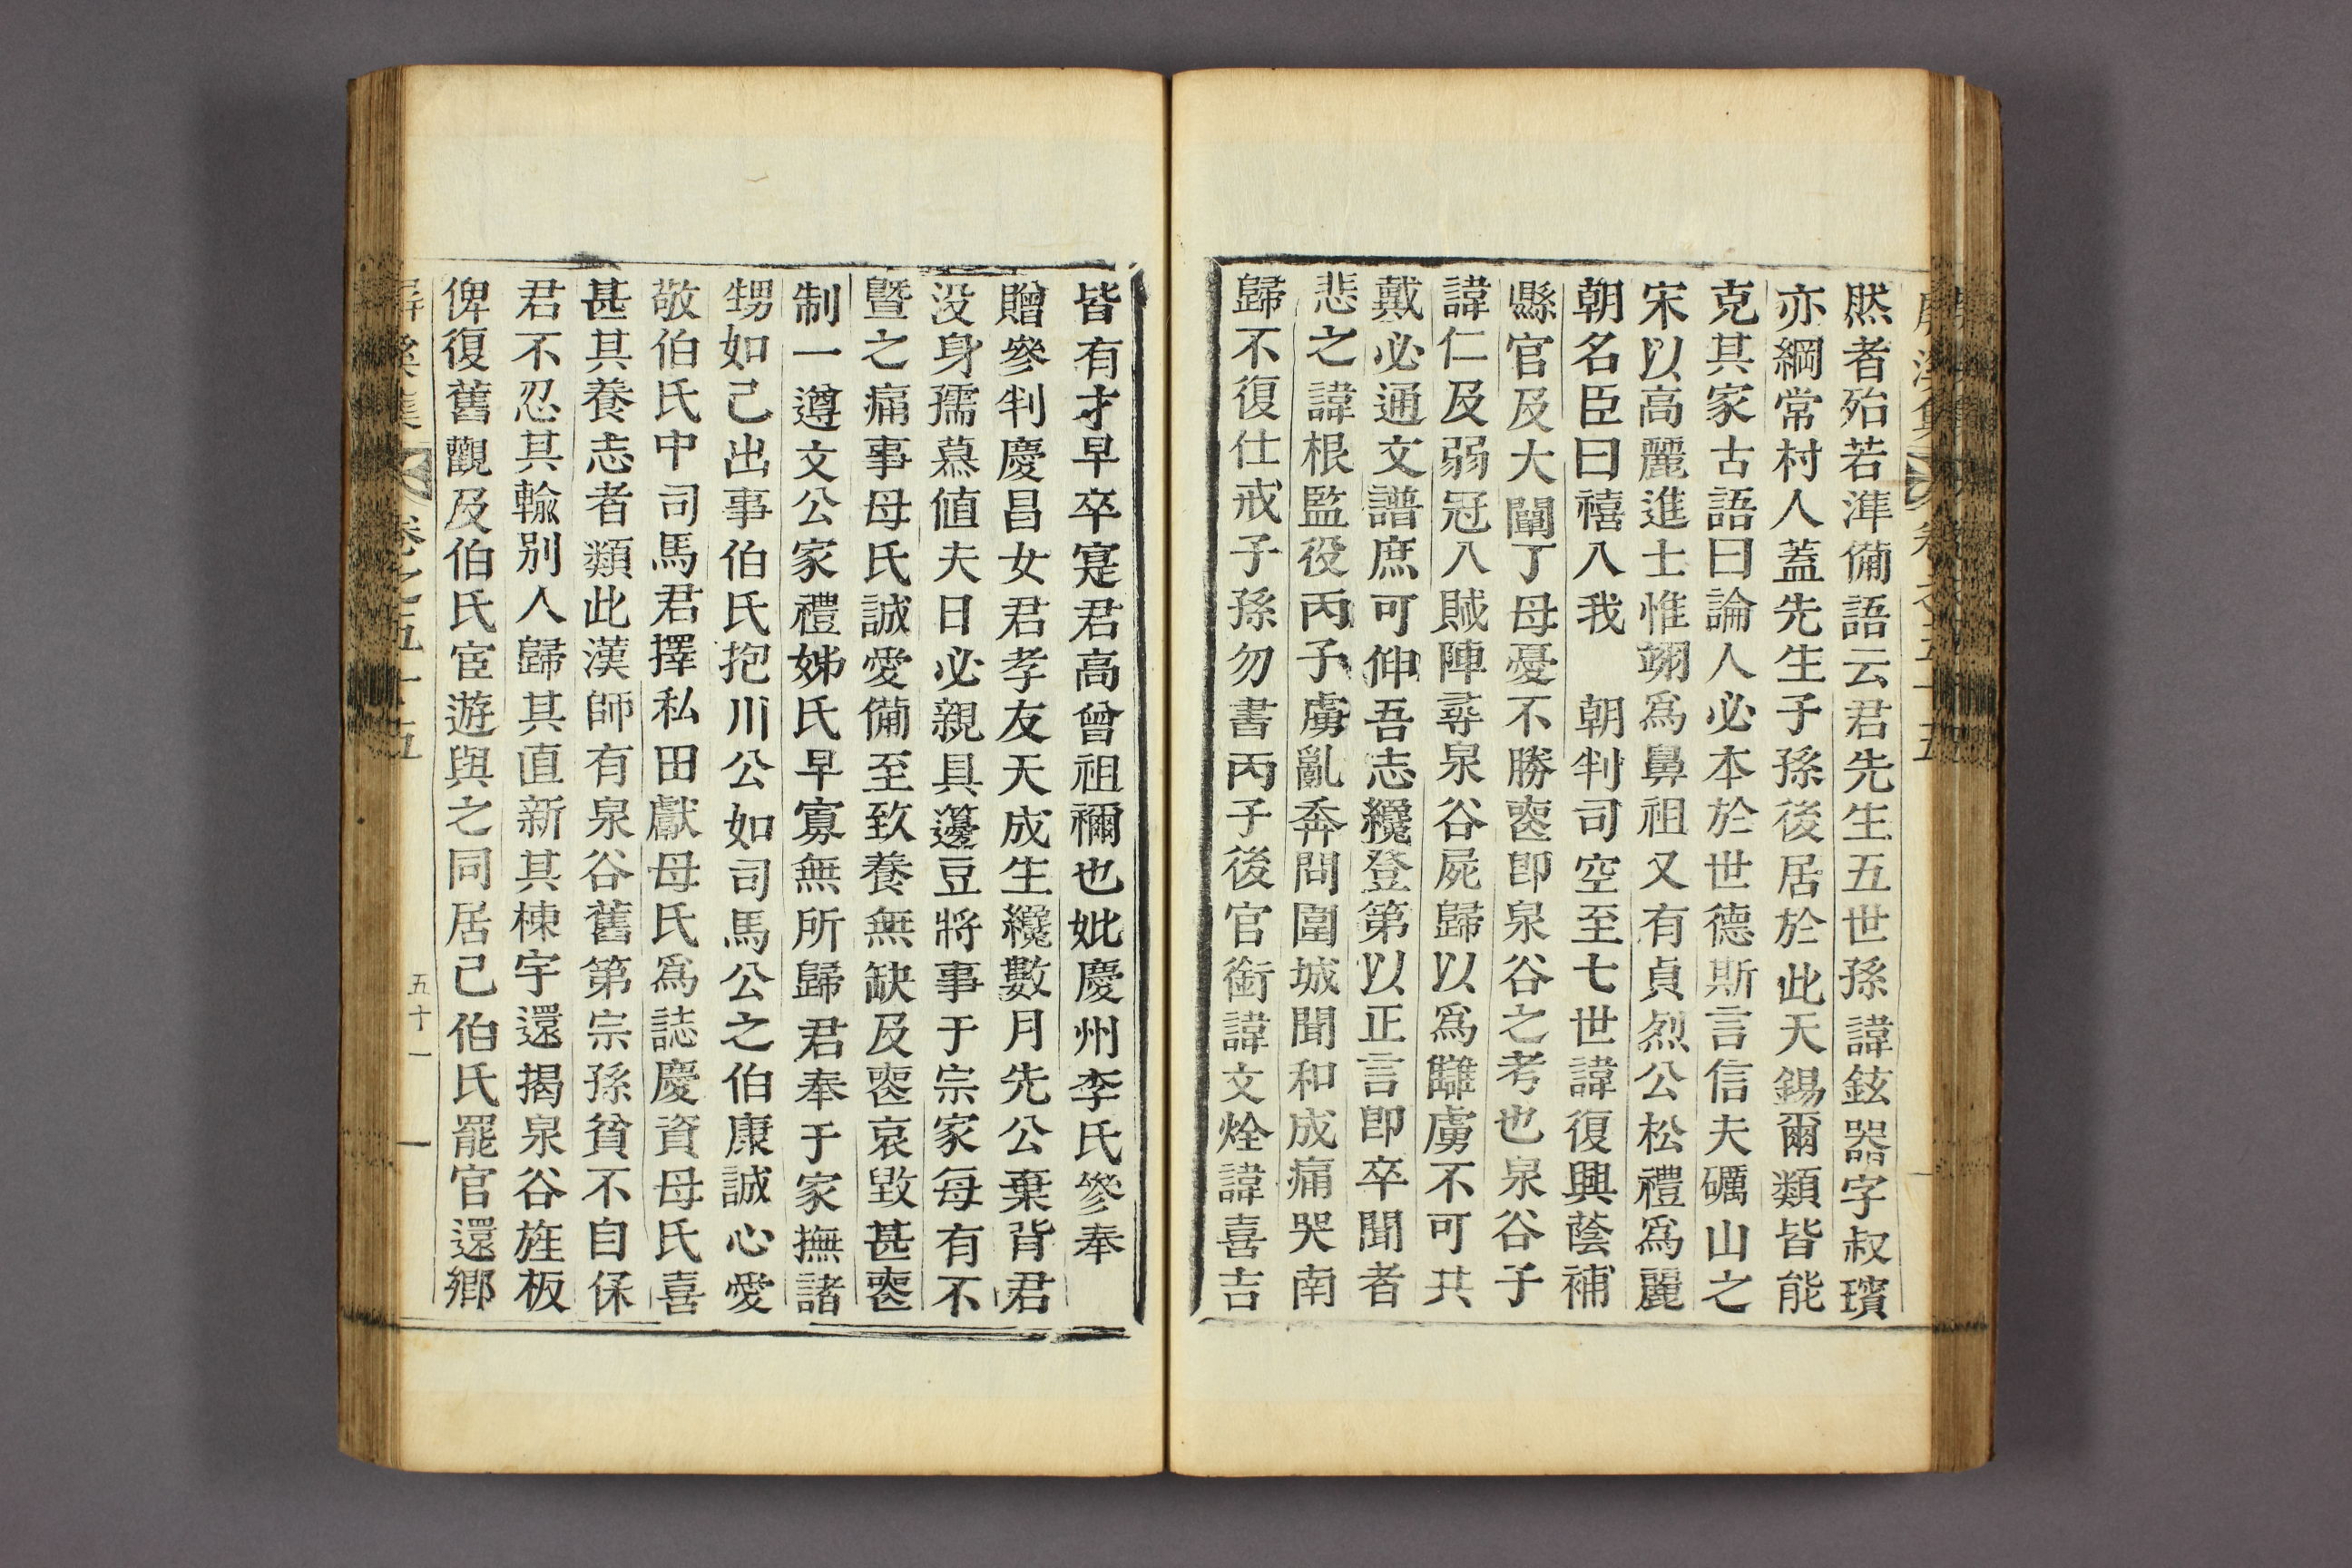 然者殆若準備語云君先生五世孫諱鉉器字叔璸
亦綱常村人蓋先生子孫後居於此天錫爾類皆能
克其家古語曰論人必本於世德斯言信夫礪山之
宋以高麗進士惟翊爲鼻祖又有貞烈公松禮爲麗
朝名臣曰禧入我 朝判司空至七世諱復興蔭補
縣官及大闡丁母憂不勝喪卽泉谷之考也泉谷子
諱仁及弱冠入賊陣尋泉谷屍歸以爲讎虜不可共
戴必通文譜庶可伸吾志纔登第以正言卽卒聞者
悲之諱根監役丙子虜亂奔問圍城聞和成痛哭南
歸不復仕戒子孫勿書丙子後官銜諱文烇諱喜吉
皆有才早卒寔君高曾祖禰也妣慶州李氏參奉
贈參判慶昌女君孝友天成生纔數月先公棄背君
没身孺慕值夫日必親具籩豆將事于宗家每有不
曁之痛事母氏誠愛備至致養無缺及喪哀毀甚喪
制一遵文公家禮姊氏早寡無所歸君奉于家撫諸
甥如己出事伯氏抱川公如司馬公之伯康誠心愛
敬伯氏中司馬君擇私田獻母氏爲誌慶資母氏喜
甚其養志者類此漢師有泉谷舊第宗孫貧不自保
君不忍其輸別人歸其直新其棟宇還揭泉谷旌板
俾復舊觀及伯氏宦遊與之同居己伯氏罷官還鄉
屏溪集 卷之五十五 五十一